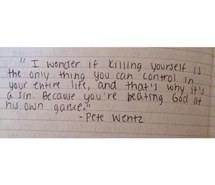 " I wonder if killing yourself is
the only thing you can control in
your entire life, and that's why it's
a sin. Because you're beating God at
his own game."
- Pete Wentz